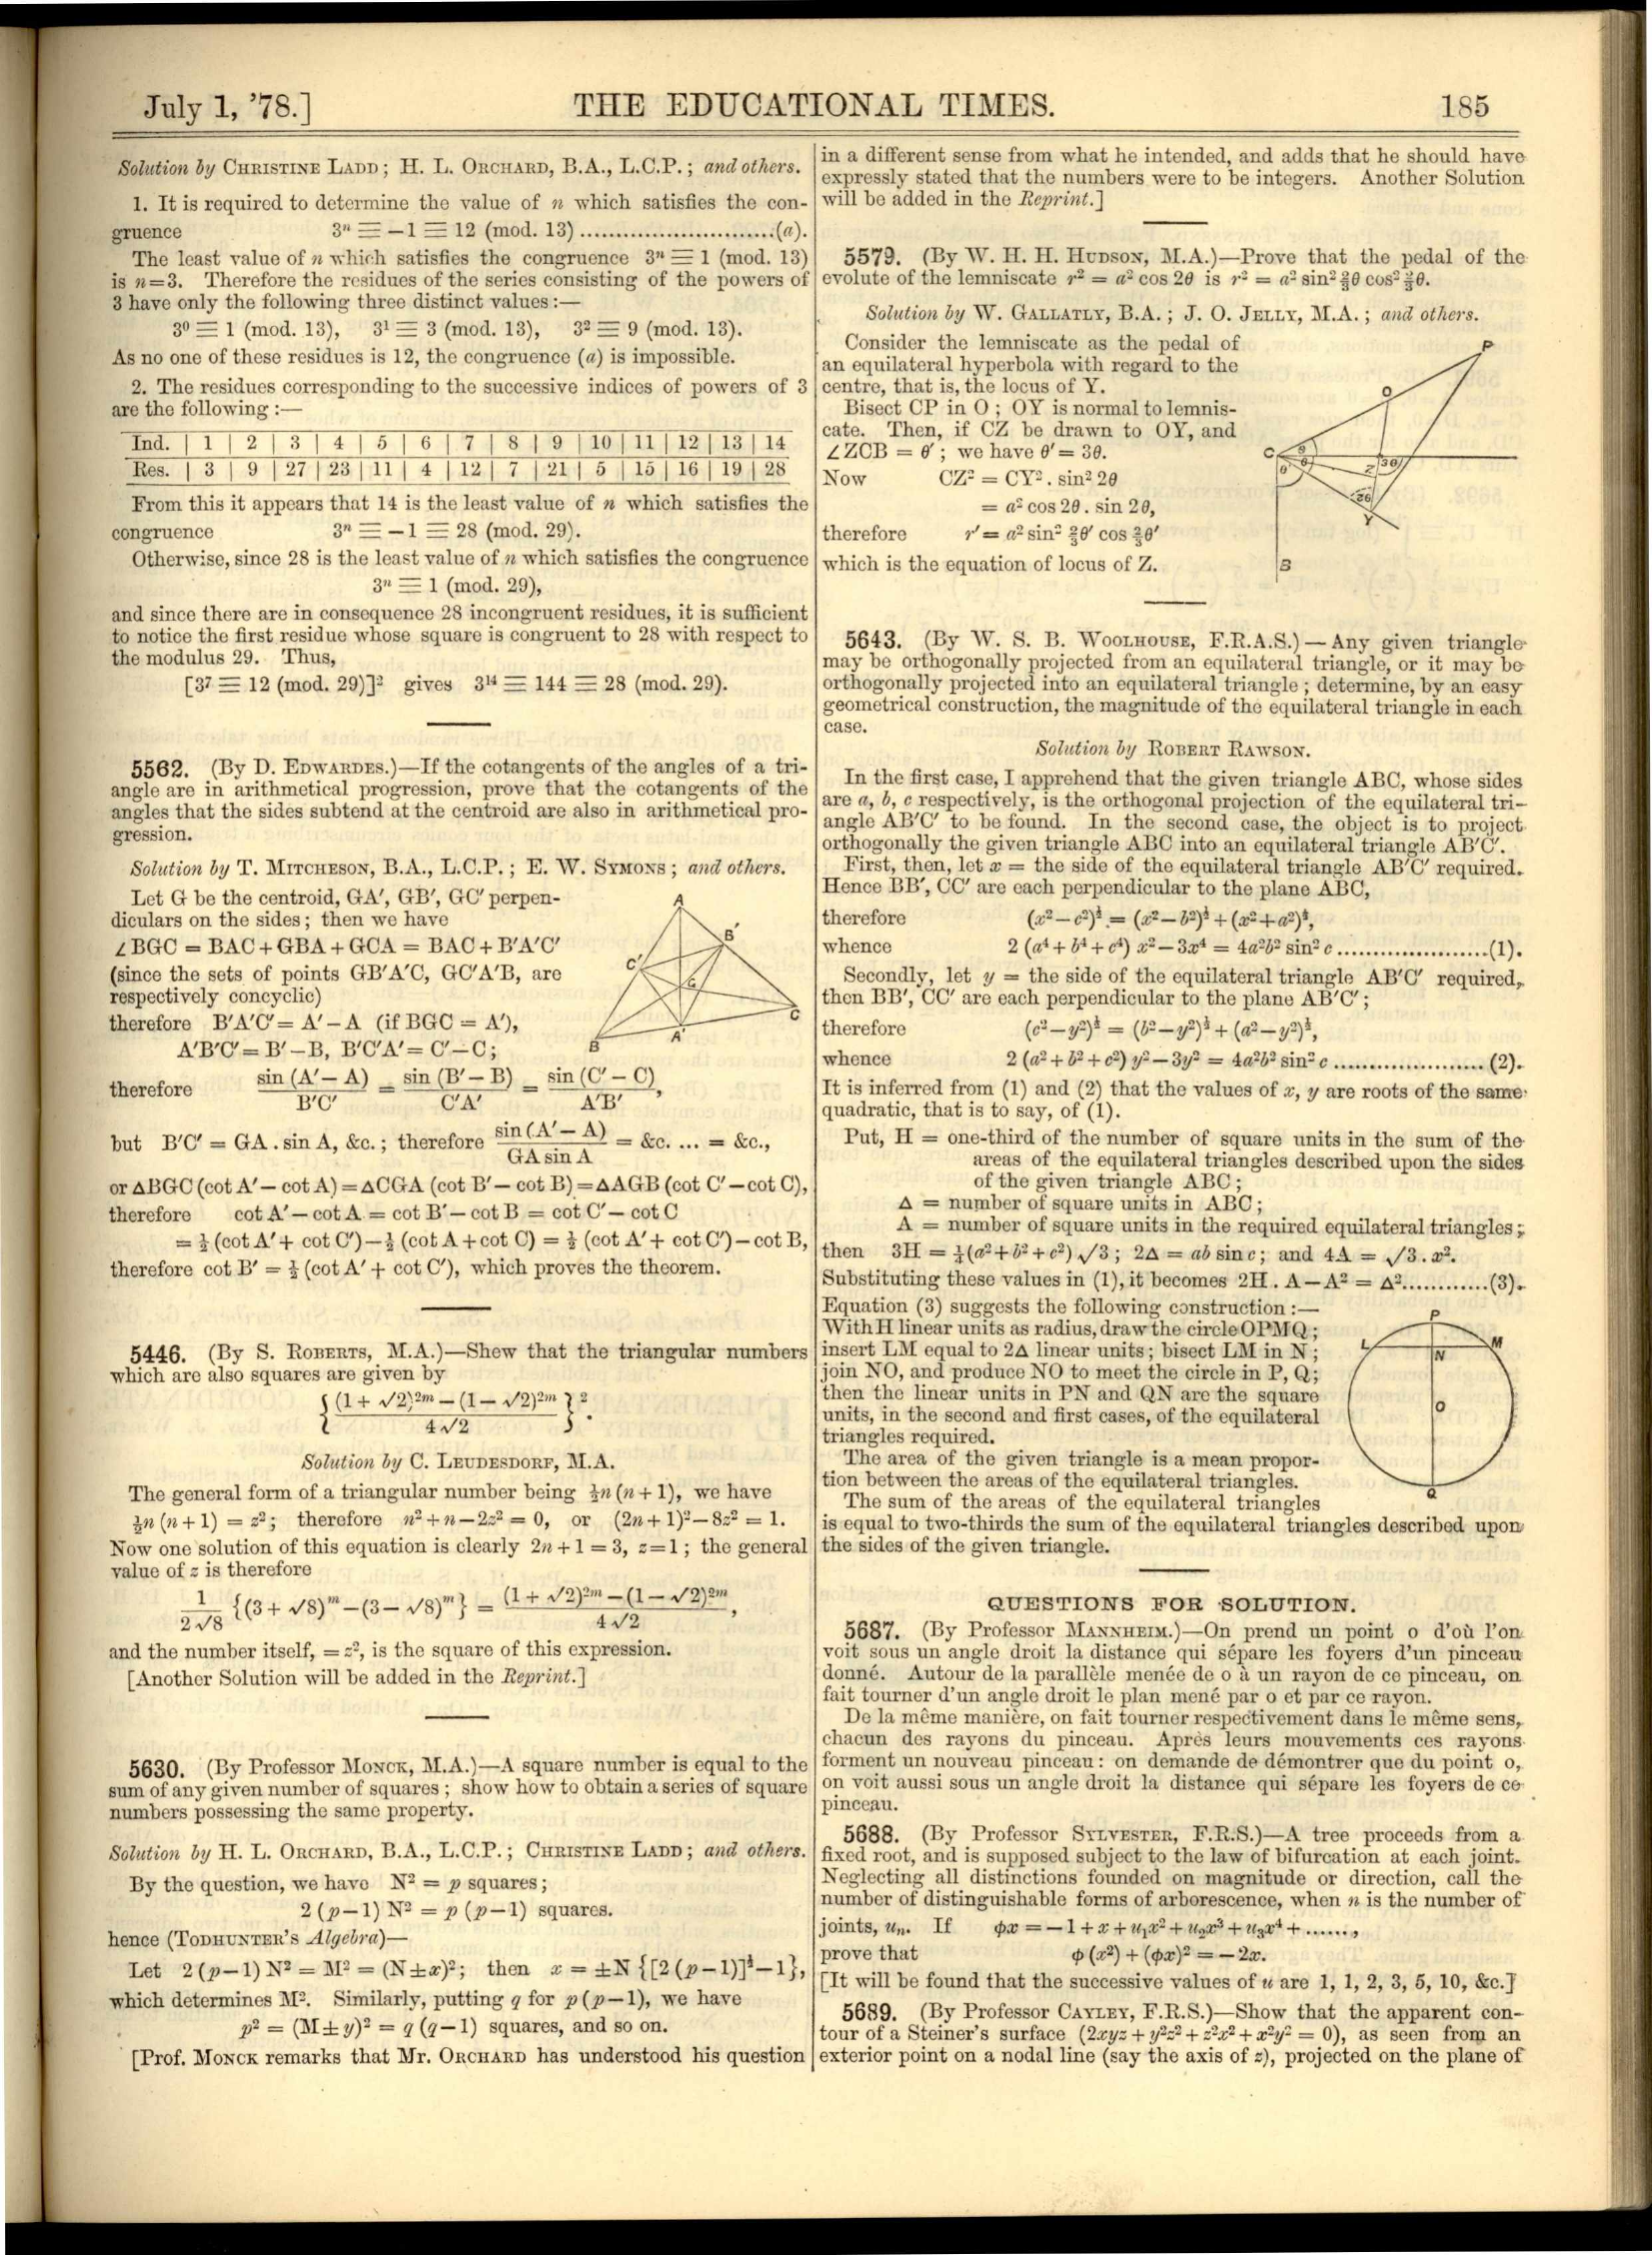 July 1, '78.] THE EDUCATIONAL TIMES. 185
Solution by CHRISTINE LADD; H. L. ORCHARD, B.A., L.C.P.; and others.
1. It is required to determine the value of n which satisfies the con-
gruence 3ⁿ ≡ −1 ≡ 12 (mod. 13) ...........................(a).
The least value of n which satisfies the congruence 3ⁿ ≡ 1 (mod. 13)
is n=3. Therefore the residues of the series consisting of the powers of
3 have only the following three distinct values:—
3⁰ ≡ 1 (mod. 13), 3¹ ≡ 3 (mod. 13), 3² ≡ 9 (mod. 13).
As no one of these residues is 12, the congruence (a) is impossible.
2. The residues corresponding to the successive indices of powers of 3
are the following:—
Ind. | 1 | 2 | 3 | 4 | 5 | 6 | 7 | 8 | 9 | 10 | 11 | 12 | 13 | 14
Res. | 3 | 9 | 27 | 23 | 11 | 4 | 12 | 7 | 21 | 5 | 15 | 16 | 19 | 28
From this it appears that 14 is the least value of n which satisfies the
congruence 3ⁿ ≡ −1 ≡ 28 (mod. 29).
Otherwise, since 28 is the least value of n which satisfies the congruence
3ⁿ ≡ 1 (mod. 29),
and since there are in consequence 28 incongruent residues, it is sufficient
to notice the first residue whose square is congruent to 28 with respect to
the modulus 29. Thus,
[3⁷ ≡ 12 (mod. 29)]² gives 3¹⁴ ≡ 144 ≡ 28 (mod. 29).
5562. (By D. EDWARDES.)—If the cotangents of the angles of a tri-
angle are in arithmetical progression, prove that the cotangents of the
angles that the sides subtend at the centroid are also in arithmetical pro-
gression.
Solution by T. MITCHESON, B.A., L.C.P.; E. W. SYMONS; and others.
Let G be the centroid, GA′, GB′, GC′ perpen-
diculars on the sides; then we have
∠BGC = BAC + GBA + GCA = BAC + B′A′C′
(since the sets of points GB′A′C, GC′A′B, are
respectively concyclic)
therefore B′A′C′ = A′−A (if BGC = A′),
A′B′C′ = B′−B, B′C′A′ = C′−C;
therefore sin (A′−A)/B′C′ = sin (B′−B)/C′A′ = sin (C′−C)/A′B′,
but B′C′ = GA . sin A, &c.; therefore sin (A′−A)/GA sin A = &c. ... = &c.,
or ΔBGC (cot A′−cot A) = ΔCGA (cot B′−cot B) = ΔAGB (cot C′−cot C),
therefore cot A′−cot A = cot B′−cot B = cot C′−cot C
= ½ (cot A′+ cot C′)−½ (cot A + cot C) = ½ (cot A′+ cot C′)−cot B,
therefore cot B′ = ½ (cot A′ + cot C′), which proves the theorem.
A
B′
C′
G
C
A′
B
5446. (By S. ROBERTS, M.A.)—Shew that the triangular numbers
which are also squares are given by
{((1 + √2)²ᵐ − (1 − √2)²ᵐ)/4√2}².
Solution by C. LEUDESDORF, M.A.
The general form of a triangular number being ½n (n + 1), we have
½n (n + 1) = z²; therefore n² + n − 2z² = 0, or (2n + 1)² − 8z² = 1.
Now one solution of this equation is clearly 2n + 1 = 3, z = 1; the general
value of z is therefore
1/2√8 {(3 + √8)ᵐ − (3 − √8)ᵐ} = ((1 + √2)²ᵐ − (1 − √2)²ᵐ)/4√2,
and the number itself, = z², is the square of this expression.
[Another Solution will be added in the Reprint.]
5630. (By Professor MONCK, M.A.)—A square number is equal to the
sum of any given number of squares; show how to obtain a series of square
numbers possessing the same property.
Solution by H. L. ORCHARD, B.A., L.C.P.; CHRISTINE LADD; and others.
By the question, we have N² = p squares;
2 (p−1) N² = p (p−1) squares.
hence (TODHUNTER'S Algebra)—
Let 2 (p−1) N² = M² = (N ± x)²; then x = ±N {[2 (p−1)]^½ −1},
which determines M². Similarly, putting q for p (p−1), we have
p² = (M ± y)² = q (q−1) squares, and so on.
[Prof. MONCK remarks that Mr. ORCHARD has understood his question
in a different sense from what he intended, and adds that he should have
expressly stated that the numbers were to be integers. Another Solution
will be added in the Reprint.]
5579. (By W. H. H. HUDSON, M.A.)—Prove that the pedal of the
evolute of the lemniscate r² = a² cos 2θ is r² = a² sin² ⅔θ cos² ⅔θ.
Solution by W. GALLATLY, B.A.; J. O. JELLY, M.A.; and others.
Consider the lemniscate as the pedal of
an equilateral hyperbola with regard to the
centre, that is, the locus of Y.
Bisect CP in O; OY is normal to lemnis-
cate. Then, if CZ be drawn to OY, and
∠ZCB = θ′; we have θ′ = 3θ.
Now CZ² = CY² . sin² 2θ
= a² cos 2θ . sin 2θ,
therefore r′ = a² sin² ⅔θ′ cos ⅔θ′
which is the equation of locus of Z.
P
O
C
θ
θ
θ′
Z
3θ
2θ
Y
B
5643. (By W. S. B. WOOLHOUSE, F.R.A.S.)—Any given triangle
may be orthogonally projected from an equilateral triangle, or it may be
orthogonally projected into an equilateral triangle; determine, by an easy
geometrical construction, the magnitude of the equilateral triangle in each
case.
Solution by ROBERT RAWSON.
In the first case, I apprehend that the given triangle ABC, whose sides
are a, b, c respectively, is the orthogonal projection of the equilateral tri-
angle AB′C′ to be found. In the second case, the object is to project
orthogonally the given triangle ABC into an equilateral triangle AB′C′.
First, then, let x = the side of the equilateral triangle AB′C′ required.
Hence BB′, CC′ are each perpendicular to the plane ABC,
therefore (x²−c²)^½ = (x²−b²)^½ + (x²+a²)^½,
whence 2 (a⁴ + b⁴ + c⁴) x² − 3x⁴ = 4a²b² sin² c .....................(1).
Secondly, let y = the side of the equilateral triangle AB′C′ required,
then BB′, CC′ are each perpendicular to the plane AB′C′;
therefore (c²−y²)^½ = (b²−y²)^½ + (a²−y²)^½,
whence 2 (a² + b² + c²) y² − 3y² = 4a²b² sin² c ..................... (2).
It is inferred from (1) and (2) that the values of x, y are roots of the same
quadratic, that is to say, of (1).
Put, H = one-third of the number of square units in the sum of the
areas of the equilateral triangles described upon the sides
of the given triangle ABC;
Δ = number of square units in ABC;
A = number of square units in the required equilateral triangles;
then 3H = ¼(a² + b² + c²) √3; 2Δ = ab sin c; and 4A = √3 . x².
Substituting these values in (1), it becomes 2H . A − A² = Δ²............(3).
Equation (3) suggests the following construction:—
With H linear units as radius, draw the circle OPMQ;
insert LM equal to 2Δ linear units; bisect LM in N;
join NO, and produce NO to meet the circle in P, Q;
then the linear units in PN and QN are the square
units, in the second and first cases, of the equilateral
triangles required.
The area of the given triangle is a mean propor-
tion between the areas of the equilateral triangles.
The sum of the areas of the equilateral triangles
is equal to two-thirds the sum of the equilateral triangles described upon
the sides of the given triangle.
P
L
M
N
O
Q
QUESTIONS FOR SOLUTION.
5687. (By Professor MANNHEIM.)—On prend un point o d'où l'on
voit sous un angle droit la distance qui sépare les foyers d'un pinceau
donné. Autour de la parallèle menée de o à un rayon de ce pinceau, on
fait tourner d'un angle droit le plan mené par o et par ce rayon.
De la même manière, on fait tourner respectivement dans le même sens,
chacun des rayons du pinceau. Après leurs mouvements ces rayons
forment un nouveau pinceau: on demande de démontrer que du point o,
on voit aussi sous un angle droit la distance qui sépare les foyers de ce
pinceau.
5688. (By Professor SYLVESTER, F.R.S.)—A tree proceeds from a
fixed root, and is supposed subject to the law of bifurcation at each joint.
Neglecting all distinctions founded on magnitude or direction, call the
number of distinguishable forms of arborescence, when n is the number of
joints, uₙ. If φx = −1 + x + u₁x² + u₂x³ + u₃x⁴ + ......,
prove that φ (x²) + (φx)² = −2x.
[It will be found that the successive values of u are 1, 1, 2, 3, 5, 10, &c.]
5689. (By Professor CAYLEY, F.R.S.)—Show that the apparent con-
tour of a Steiner's surface (2xyz + y²z² + z²x² + x²y² = 0), as seen from an
exterior point on a nodal line (say the axis of z), projected on the plane of